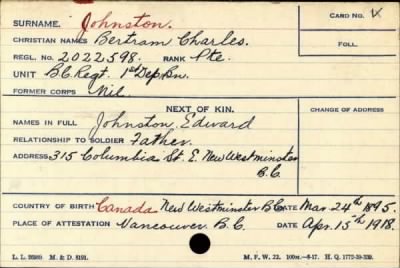 SURNAME. Johnston. CARD NO. V
CHRISTIAN NAMES Bertram Charles. FOLL.
REGL. NO. 2022598. RANK Pte.
UNIT B.C. Regt. 1st Dep. Bn.
FORMER CORPS Nil.
NEXT OF KIN. CHANGE OF ADDRESS
NAMES IN FULL Johnston, Edward
RELATIONSHIP TO SOLDIER Father.
ADDRESS 315 Columbia St. E. New Westminster
B.C.
COUNTRY OF BIRTH Canada New Westminster B.C. DATE Mar. 24th 1895.
PLACE OF ATTESTATION Vancouver. B.C. DATE Apr. 15th 1918.
M. & D. 8191. M. F. W. 22.